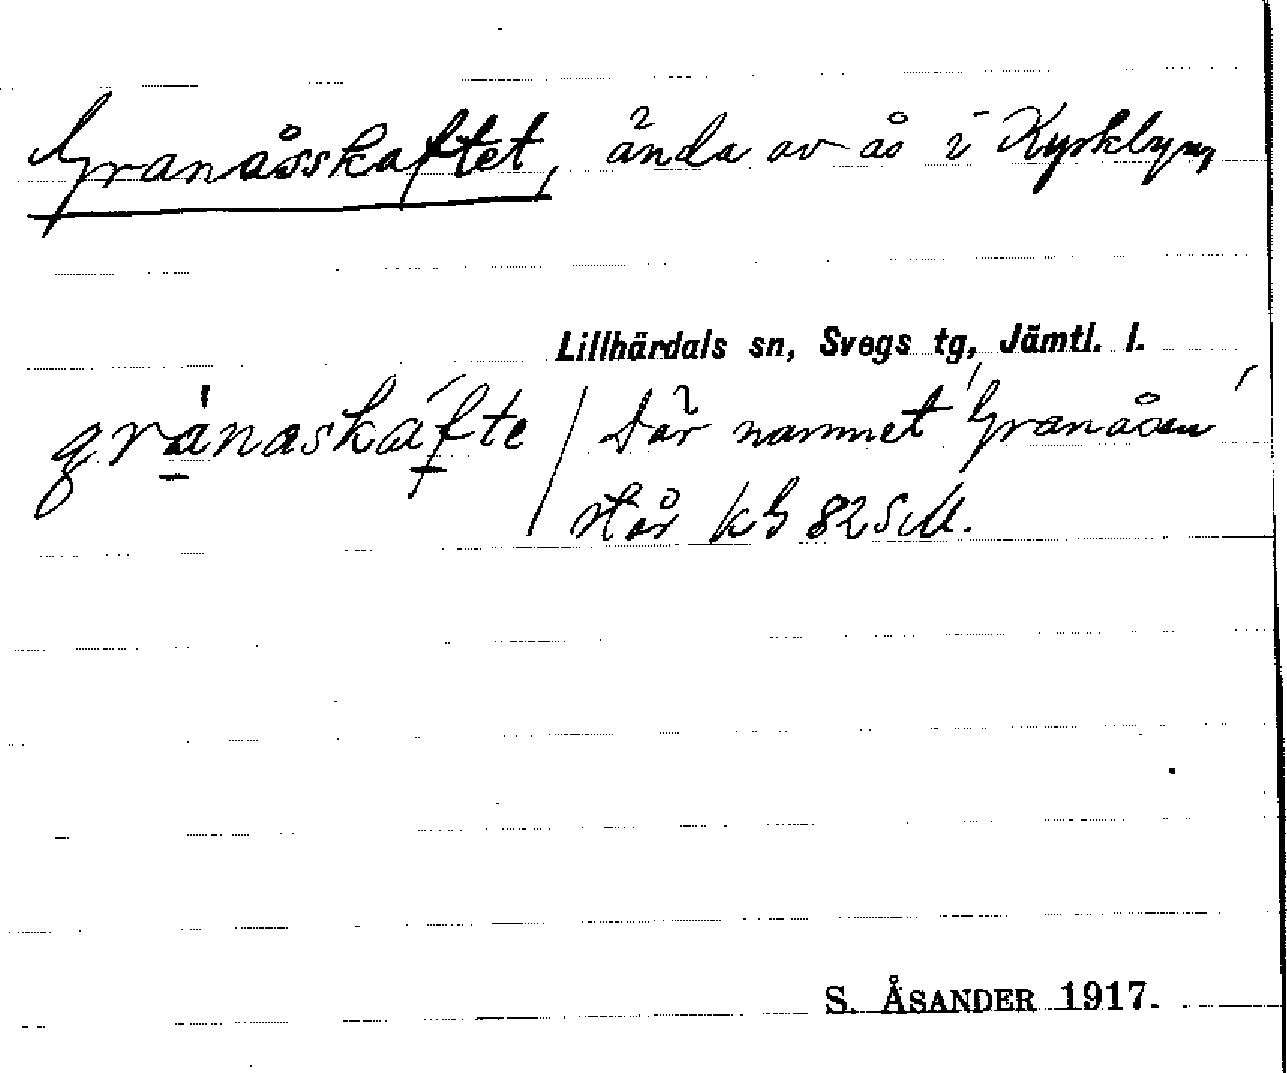 Granåsskaftet, ända av ås i Kyrkbyn,
Lillhärdals sn, Svegs tg, Jämtl. l.
gránaskáfte / där namnet 'Granåsen'
står kb 82 SM.
S. ÅSANDER 1917.